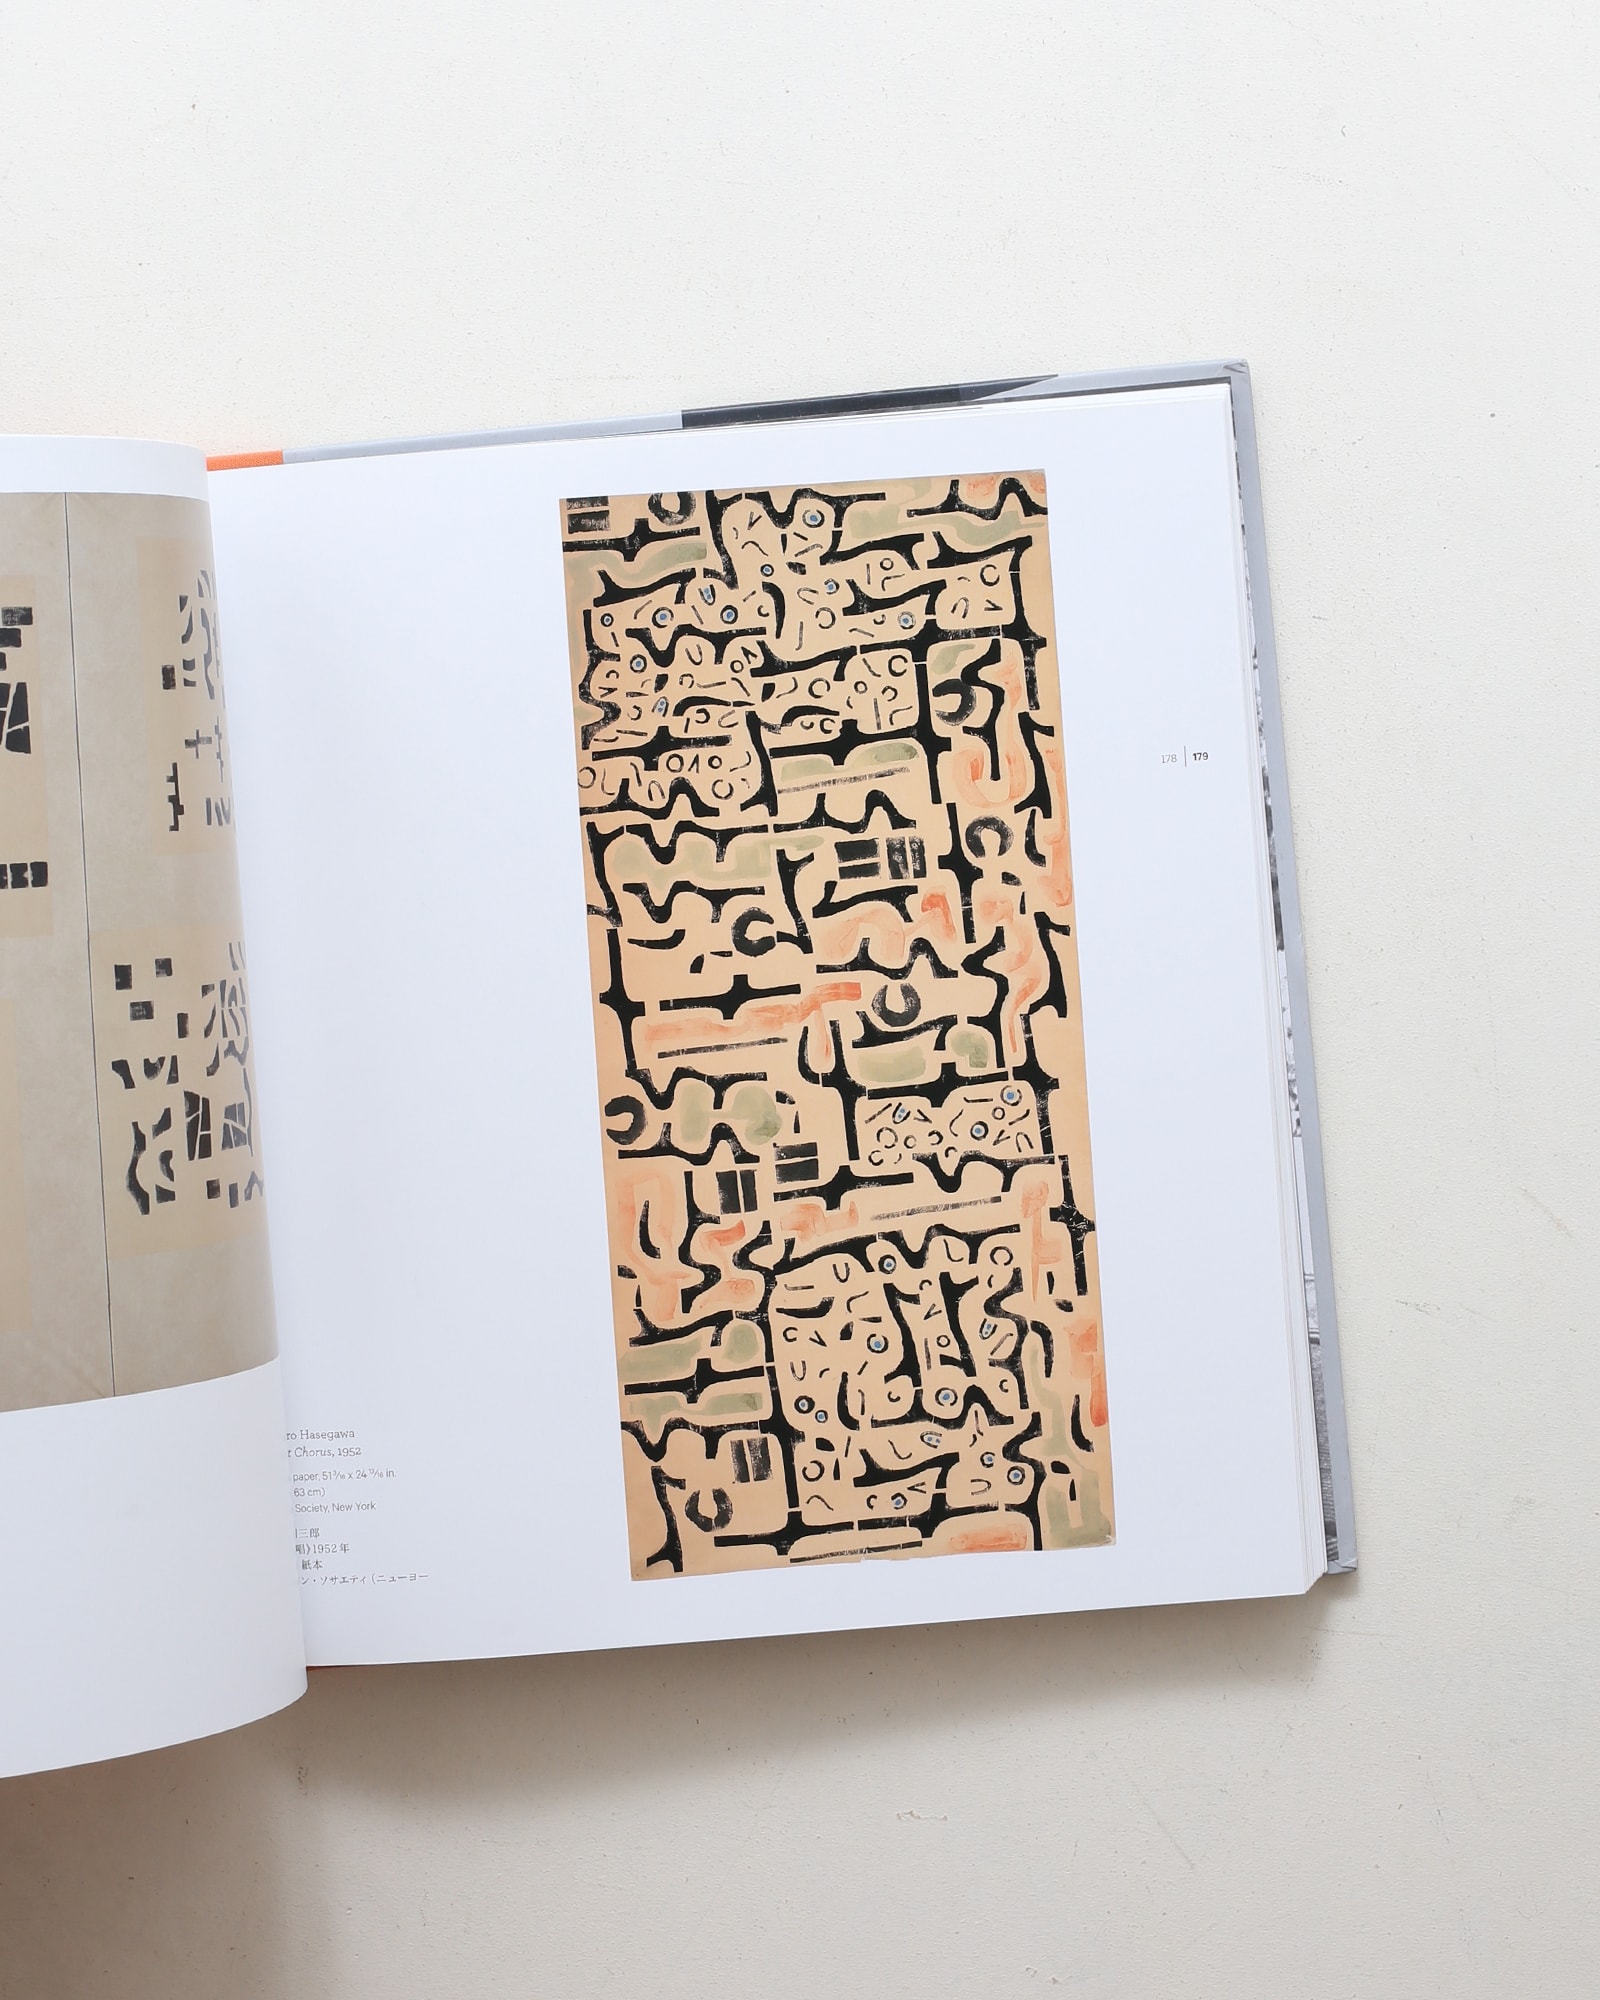 178 | 179
ro Hasegawa
t Chorus, 1952
paper, 51 3/16 x 24 13/16 in.
63 cm)
Society, New York
三郎
唱》1952年
紙本
ン・ソサエティ（ニューヨー